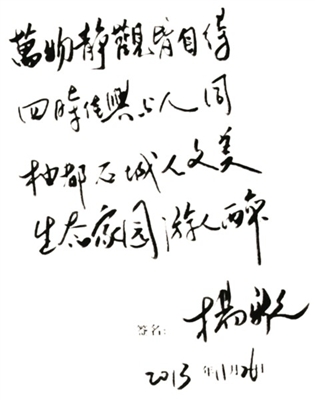 萬物静觀皆自得
四時佳興与人同
柚都石城人文美
生态家园游人醉
签名: 楊
2013 年11月26日